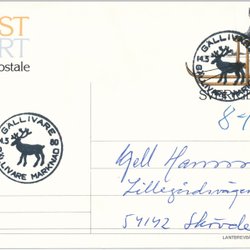 ST
RT
ostale
GÄLLIVARE
14.3 80
GÄLLIVARE MARKNAD
GÄLLIVARE
14.3
GÄLLIVARE MARKNAD
SVERIGE
Kjell
Lillegårdsvägen
54142 Skövde